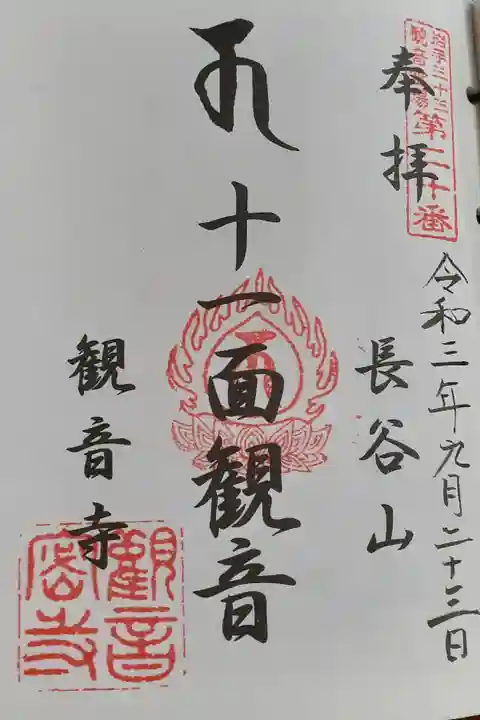 岩手三十三
観音霊場
第二十番
奉拝
令和三年九月二十三日
長谷山
十一面観音
観音寺
觀音